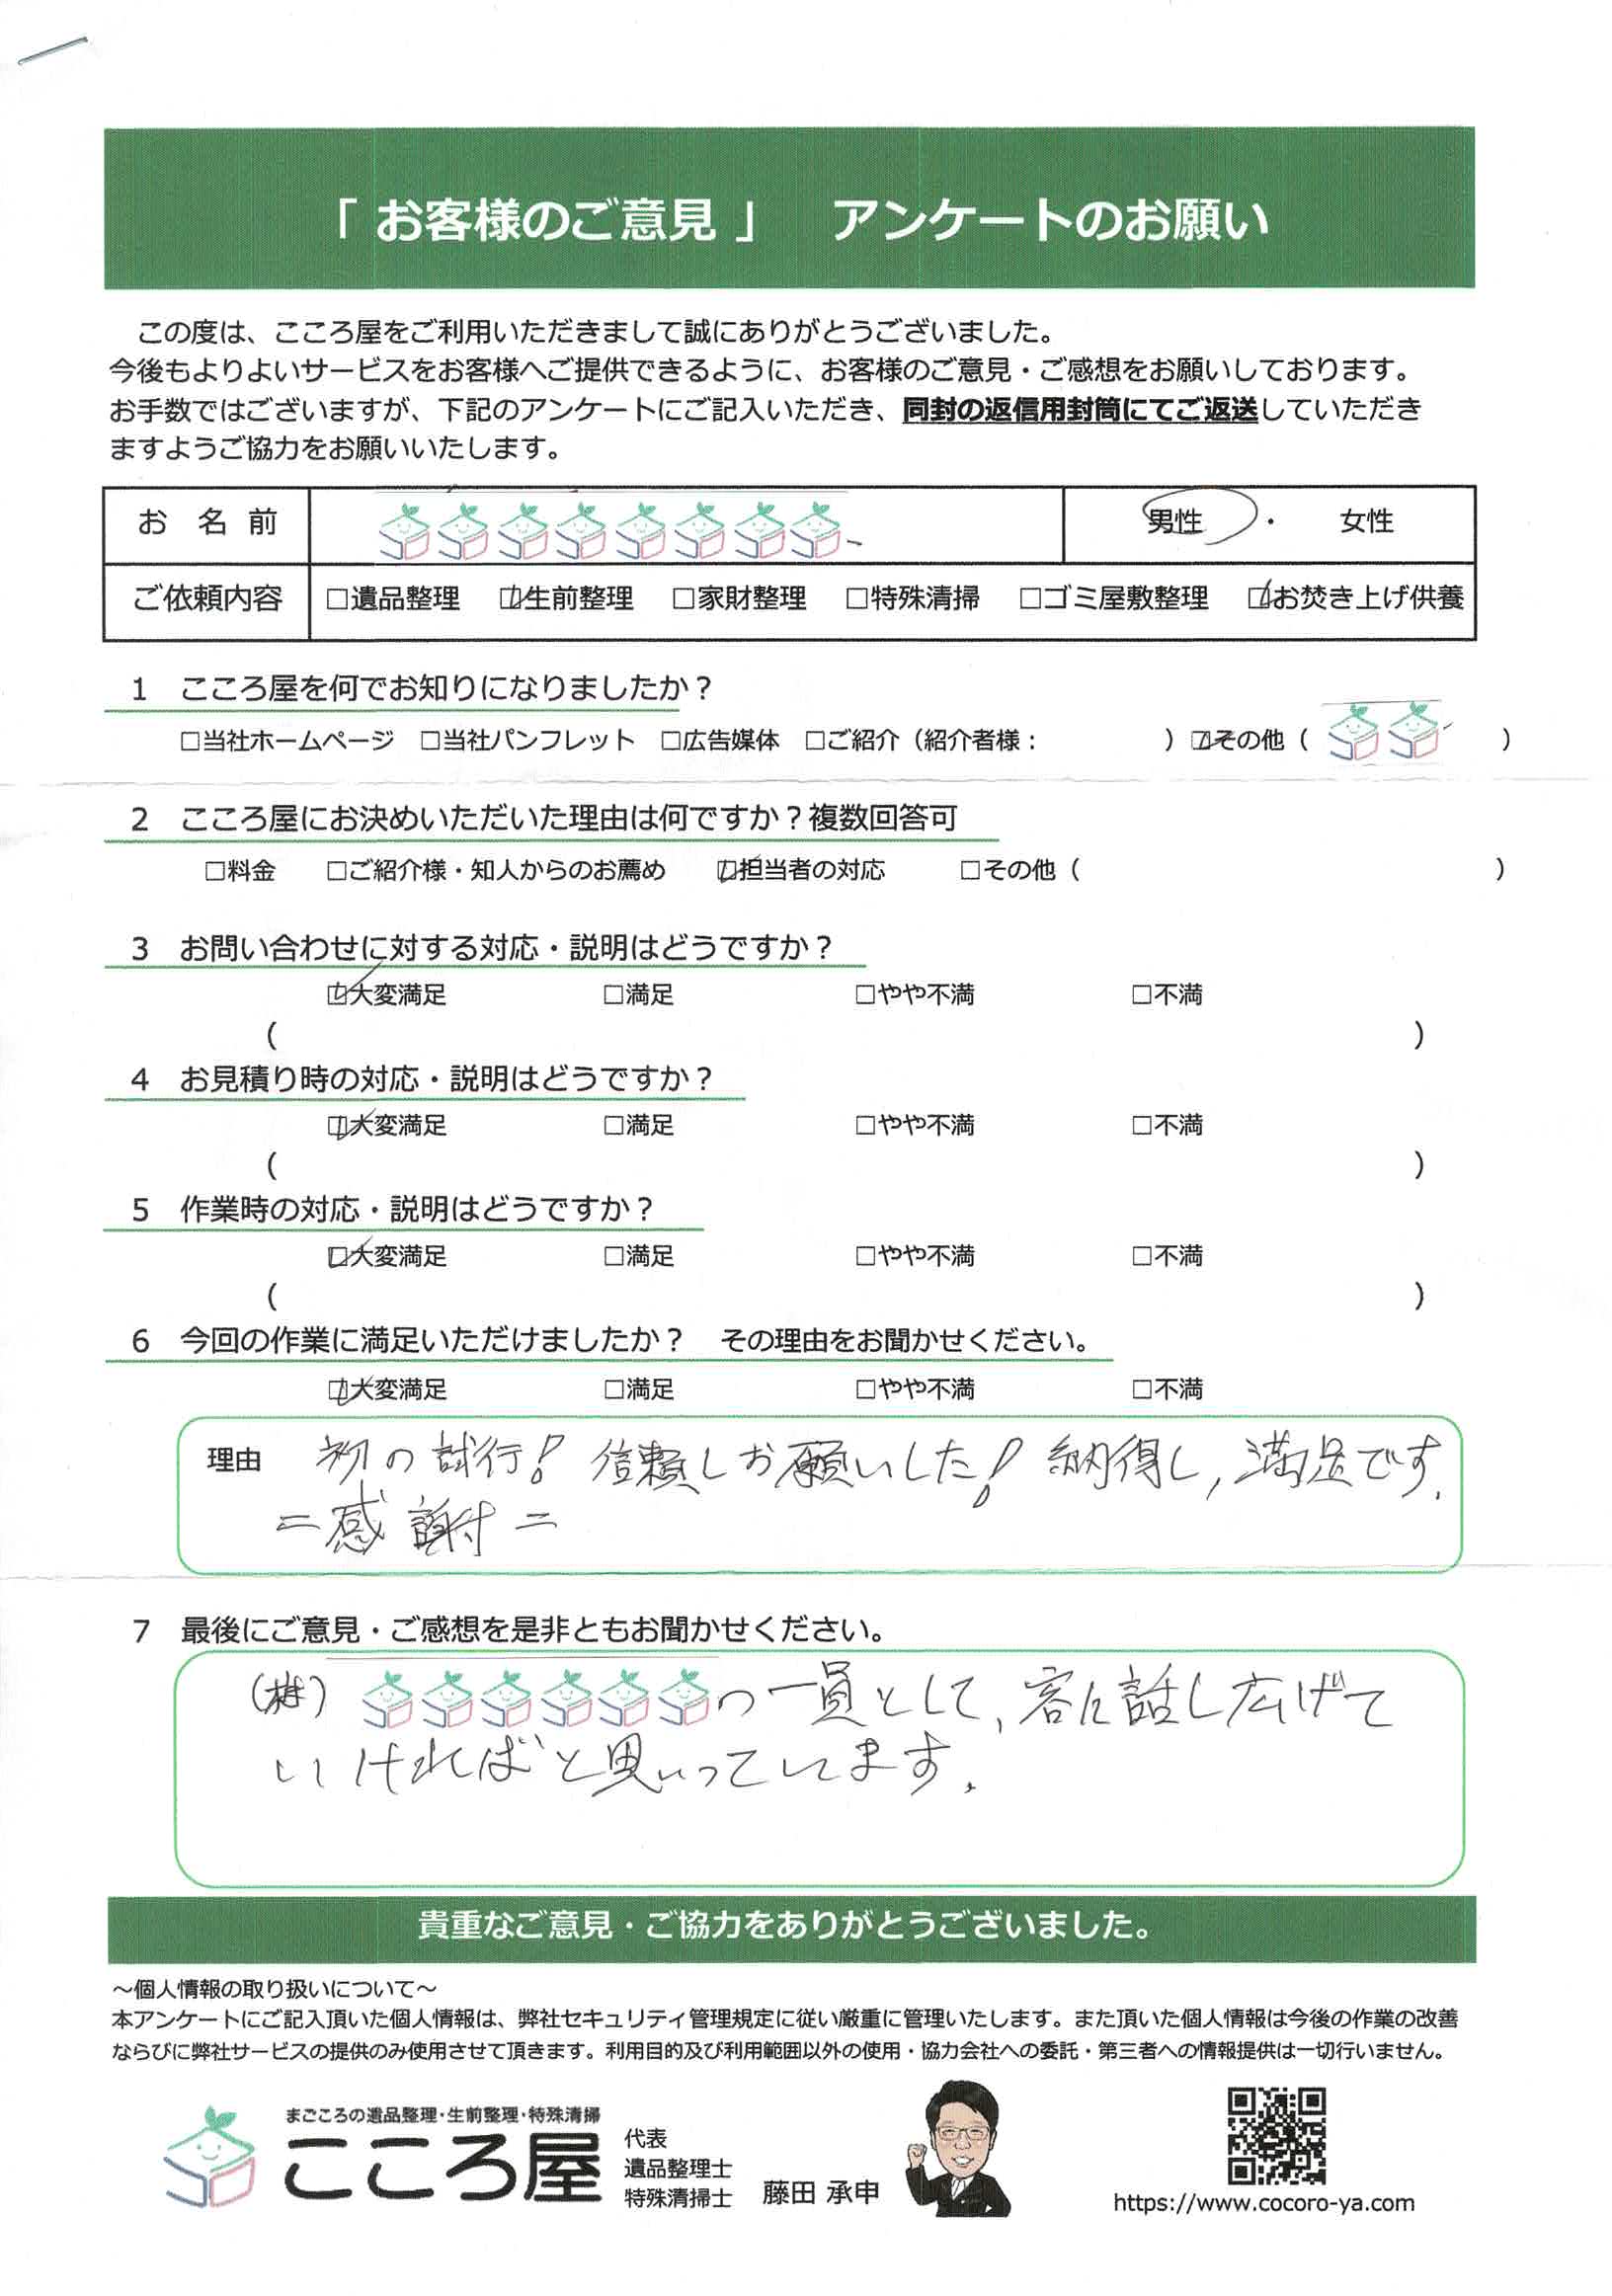 「 お客様のご意見 」　アンケートのお願い
この度は、こころ屋をご利用いただきまして誠にありがとうございました。
今後もよりよいサービスをお客様へご提供できるように、お客様のご意見・ご感想をお願いしております。
お手数ではございますが、下記のアンケートにご記入いただき、同封の返信用封筒にてご返送していただき
ますようご協力をお願いいたします。
お 名 前　男性 ・ 女性
ご依頼内容　□遺品整理　☑生前整理　□家財整理　□特殊清掃　□ゴミ屋敷整理　☑お焚き上げ供養
1　こころ屋を何でお知りになりましたか？
□当社ホームページ　□当社パンフレット　□広告媒体　□ご紹介（紹介者様：　）☑その他（　）
2　こころ屋にお決めいただいた理由は何ですか？複数回答可
□料金　□ご紹介様・知人からのお薦め　☑担当者の対応　□その他（　）
3　お問い合わせに対する対応・説明はどうですか？
☑大変満足　□満足　□やや不満　□不満
（　）
4　お見積り時の対応・説明はどうですか？
☑大変満足　□満足　□やや不満　□不満
（　）
5　作業時の対応・説明はどうですか？
☑大変満足　□満足　□やや不満　□不満
（　）
6　今回の作業に満足いただけましたか？　その理由をお聞かせください。
☑大変満足　□満足　□やや不満　□不満
理由　初の試行！信頼しお願いした！納得し，満足です．
＝感謝＝
7　最後にご意見・ご感想を是非ともお聞かせください。
（株）　の一員として、客に話し広げて
いければと思いっています．
貴重なご意見・ご協力をありがとうございました。
～個人情報の取り扱いについて～
本アンケートにご記入頂いた個人情報は、弊社セキュリティ管理規定に従い厳重に管理いたします。また頂いた個人情報は今後の作業の改善
ならびに弊社サービスの提供のみ使用させて頂きます。利用目的及び利用範囲以外の使用・協力会社への委託・第三者への情報提供は一切行いません。
まごころの遺品整理・生前整理・特殊清掃
こころ屋
代表
遺品整理士
特殊清掃士　藤田 承申
https://www.cocoro-ya.com